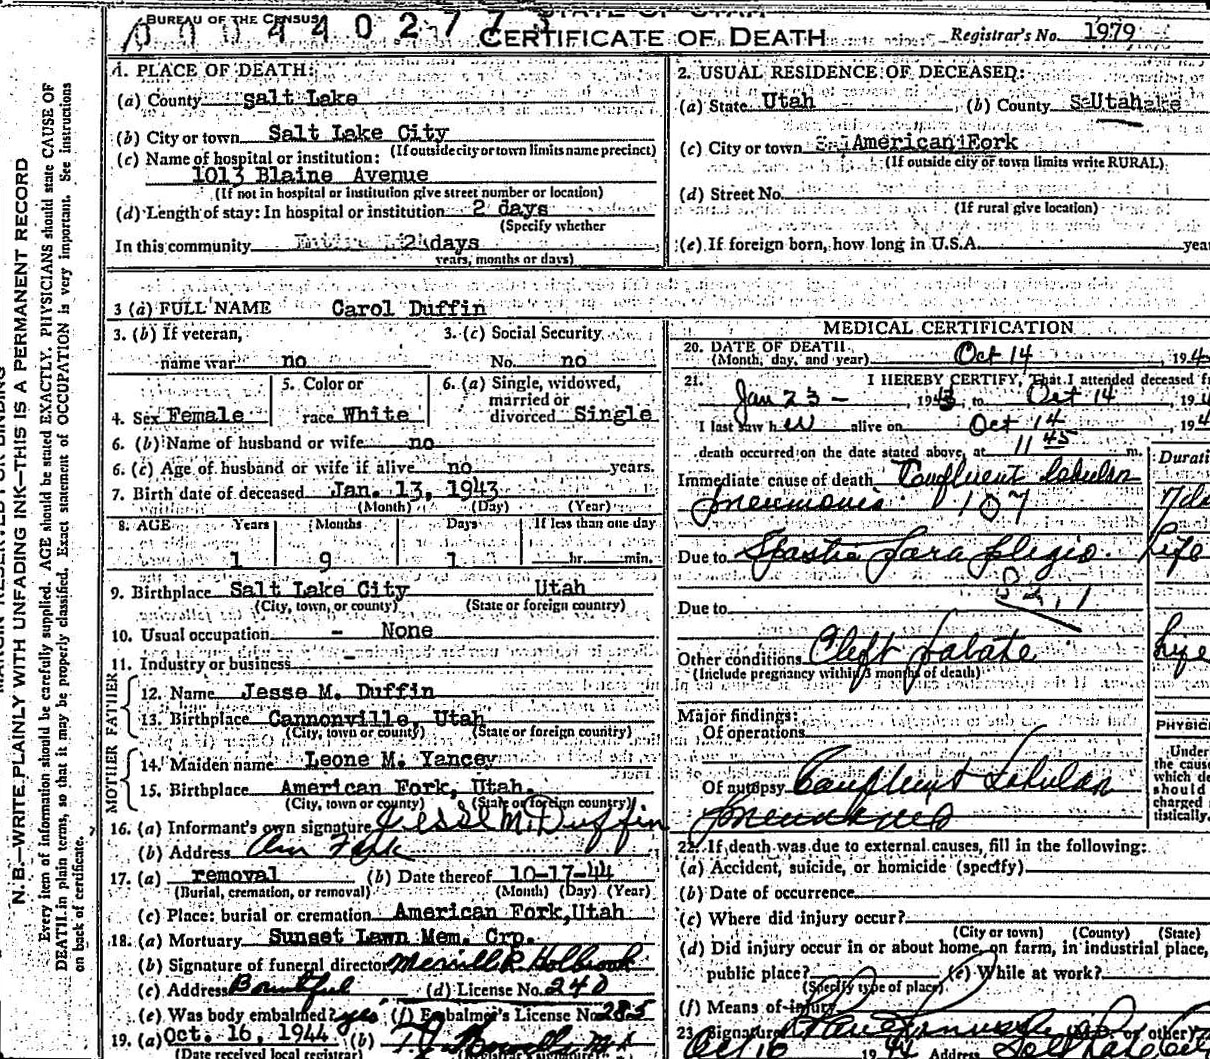 BUREAU OF THE CENSUS
STATE OF UTAH
CERTIFICATE OF DEATH
Registrar's No. 1979
1. PLACE OF DEATH:
(a) County Salt Lake
(b) City or town Salt Lake City
(If outside city or town limits name precinct)
(c) Name of hospital or institution:
1013 Blaine Avenue
(If not in hospital or institution give street number or location)
(d) Length of stay: In hospital or institution 2 days
(Specify whether
In this community 2 days
years, months or days)
2. USUAL RESIDENCE OF DECEASED:
(a) State Utah (b) County Utah
(c) City or town American Fork
(If outside city or town limits write RURAL)
(d) Street No.
(If rural give location)
(e) If foreign born, how long in U.S.A. yea
3 (a) FULL NAME Carol Duffin
3. (b) If veteran,
name war no
3. (c) Social Security
No. no
4. Sex Female
5. Color or
race White
6. (a) Single, widowed,
married or
divorced Single
6. (b) Name of husband or wife no
6. (c) Age of husband or wife if alive no years.
7. Birth date of deceased Jan. 13, 1943
(Month) (Day) (Year)
8. AGE Years Months Days If less than one day
1 9 1 hr. min.
9. Birthplace Salt Lake City Utah
(City, town, or county) (State or foreign country)
10. Usual occupation - None
11. Industry or business -
FATHER
12. Name Jesse M. Duffin
13. Birthplace Cannonville, Utah
(City, town or county) (State or foreign country)
MOTHER
14. Maiden name Leone M. Yancey
15. Birthplace American Fork, Utah.
(City, town or county) (State or foreign country)
16. (a) Informant's own signature Jesse M. Duffin
(b) Address Am Fork
17. (a) removal (b) Date thereof 10-17-44
(Burial, cremation, or removal) (Month) (Day) (Year)
(c) Place: burial or cremation American Fork, Utah
18. (a) Mortuary Sunset Lawn Mem. Crp.
(b) Signature of funeral director Merrill R. Holbrook
(c) Address Bountiful (d) License No. 240
(e) Was body embalmed? yes (f) Embalmer's License No. 285
19. (a) Oct. 16, 1944 (b)
(Date received local registrar)
MEDICAL CERTIFICATION
20. DATE OF DEATH
(Month, day, and year) Oct 14, 194
21. I HEREBY CERTIFY, That I attended deceased fr
Jan 23 - 1943, to Oct 14, 194
I last saw her alive on Oct 14, 194
death occurred on the date stated above, at 11 45 m.
Durati
Immediate cause of death Confluent Lobular
Pneumonia 107 7 da
Due to Spastic Paraplegia. Life
Due to
Other conditions Cleft Palate Life
(Include pregnancy within 3 months of death)
Major findings:
Of operations
Of autopsy Confluent Lobular
Pneumonia
PHYSIC
Under
the cause
which de
should
charged
tistically.
22. If death was due to external causes, fill in the following:
(a) Accident, suicide, or homicide (specify)
(b) Date of occurrence
(c) Where did injury occur?
(City or town) (County) (State)
(d) Did injury occur in or about home, on farm, in industrial place,
public place? (e) While at work?
(Specify type of place)
(f) Means of injury
23. Signature or other)
Oct 16 1944 Address
N.B.—WRITE PLAINLY WITH UNFADING INK—THIS IS A PERMANENT RECORD
Every item of information should be carefully supplied. AGE should be stated EXACTLY. PHYSICIANS should state CAUSE OF
DEATH in plain terms, so that it may be properly classified. Exact statement of OCCUPATION is very important. See instructions
on back of certificate.